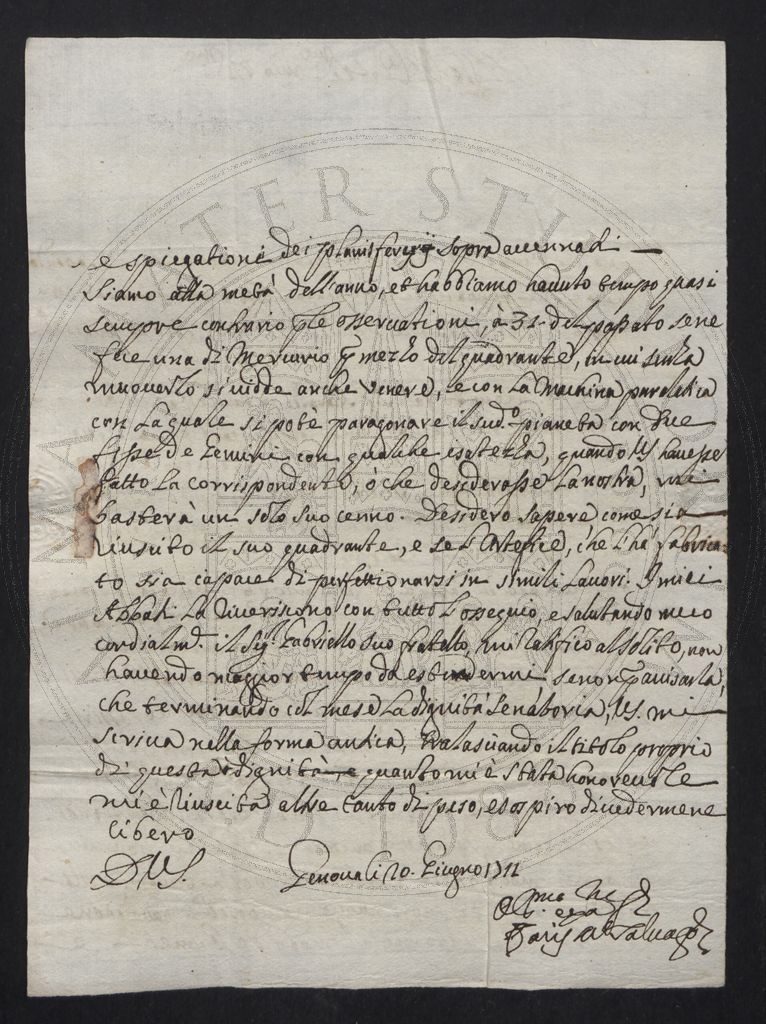 e spiegationi dei planisferij sopra accennati
Siamo alla metà dell'anno, et habbiamo hauuto tempo quasi
sempre contrario p le osseruationi, à 31. del passato se ne
fece una di Mercurio p mezzo del quadrante, in cui senza
muouerlo si vidde anche Venere, e con la Machina paralatica
con la quale si potè paragonare il sud.º pianeta con due
fisse de Gemini con qualche esatezza, quando VS hauesse
fatto la corrispondente, ò che desiderasse la nostra, mi
basterà un solo suo cenno. Desidero sapere come sia
riuscito il suo quadrante, e se l'Artefice, che l'hà fabrica=
to sia capace di perfettionarsi in simili lauori. I miei
Abbati La riueriscono con tutto l'ossequio, e salutando meco
cordialm.e il Sig.r Gabriello suo fratello, mi ratifico al solito, non
hauendo maggior tempo da estendermi se non p auisarla,
che terminando col mese la dignità Senatoria, VS. mi
scriua nella forma antica, tralasciando il titolo proprio
di questa dignità, quanto mi è stata honoreuole
mi è riuscita altre tanto di peso, e sospiro di uedermene
libero
D VS. Genoua li 20. Giugno 1711
Paris M.a Saluago